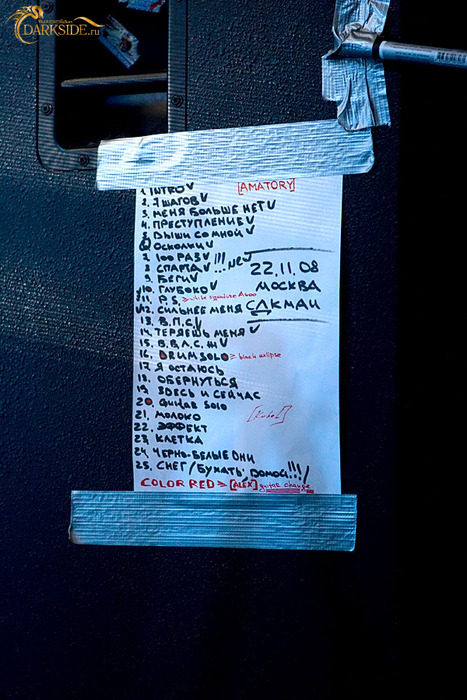 DARKSIDE.ru
[AMATORY]
1. INTRO V
2. 7 ШАГОВ V
3. МЕНЯ БОЛЬШЕ НЕТ V
4. ПРЕСТУПЛЕНИЕ V
5. ДЫШИ СО МНОЙ V
6. ОСКОЛКИ V
7. 100 РАЗ V
8. СПАРТА V !!! NEW
9. БЕГИ V
22.11.08
МОСКВА
СДКМАИ
V10. ГЛУБОКО V
V11. P.S. > white signature A600
V12. СИЛЬНЕЕ МЕНЯ
13. В.П.С. V
14. ТЕРЯЕШЬ МЕНЯ V
15. В.В.Л.С. Ж V
16. DRUM SOLO > black eclipse
17. Я ОСТАЮСЬ
18. ОБЕРНУТЬСЯ
19. ЗДЕСЬ И СЕЙЧАС
20. GUITAR SOLO
21. МОЛОКО
22. ЭФФЕКТ
23. КЛЕТКА
24. ЧЕРНО-БЕЛЫЕ ДНИ
25. СНЕГ / БУХАТЬ. ДОМОЙ!!!/
COLOR RED > [ALEX] guitar change